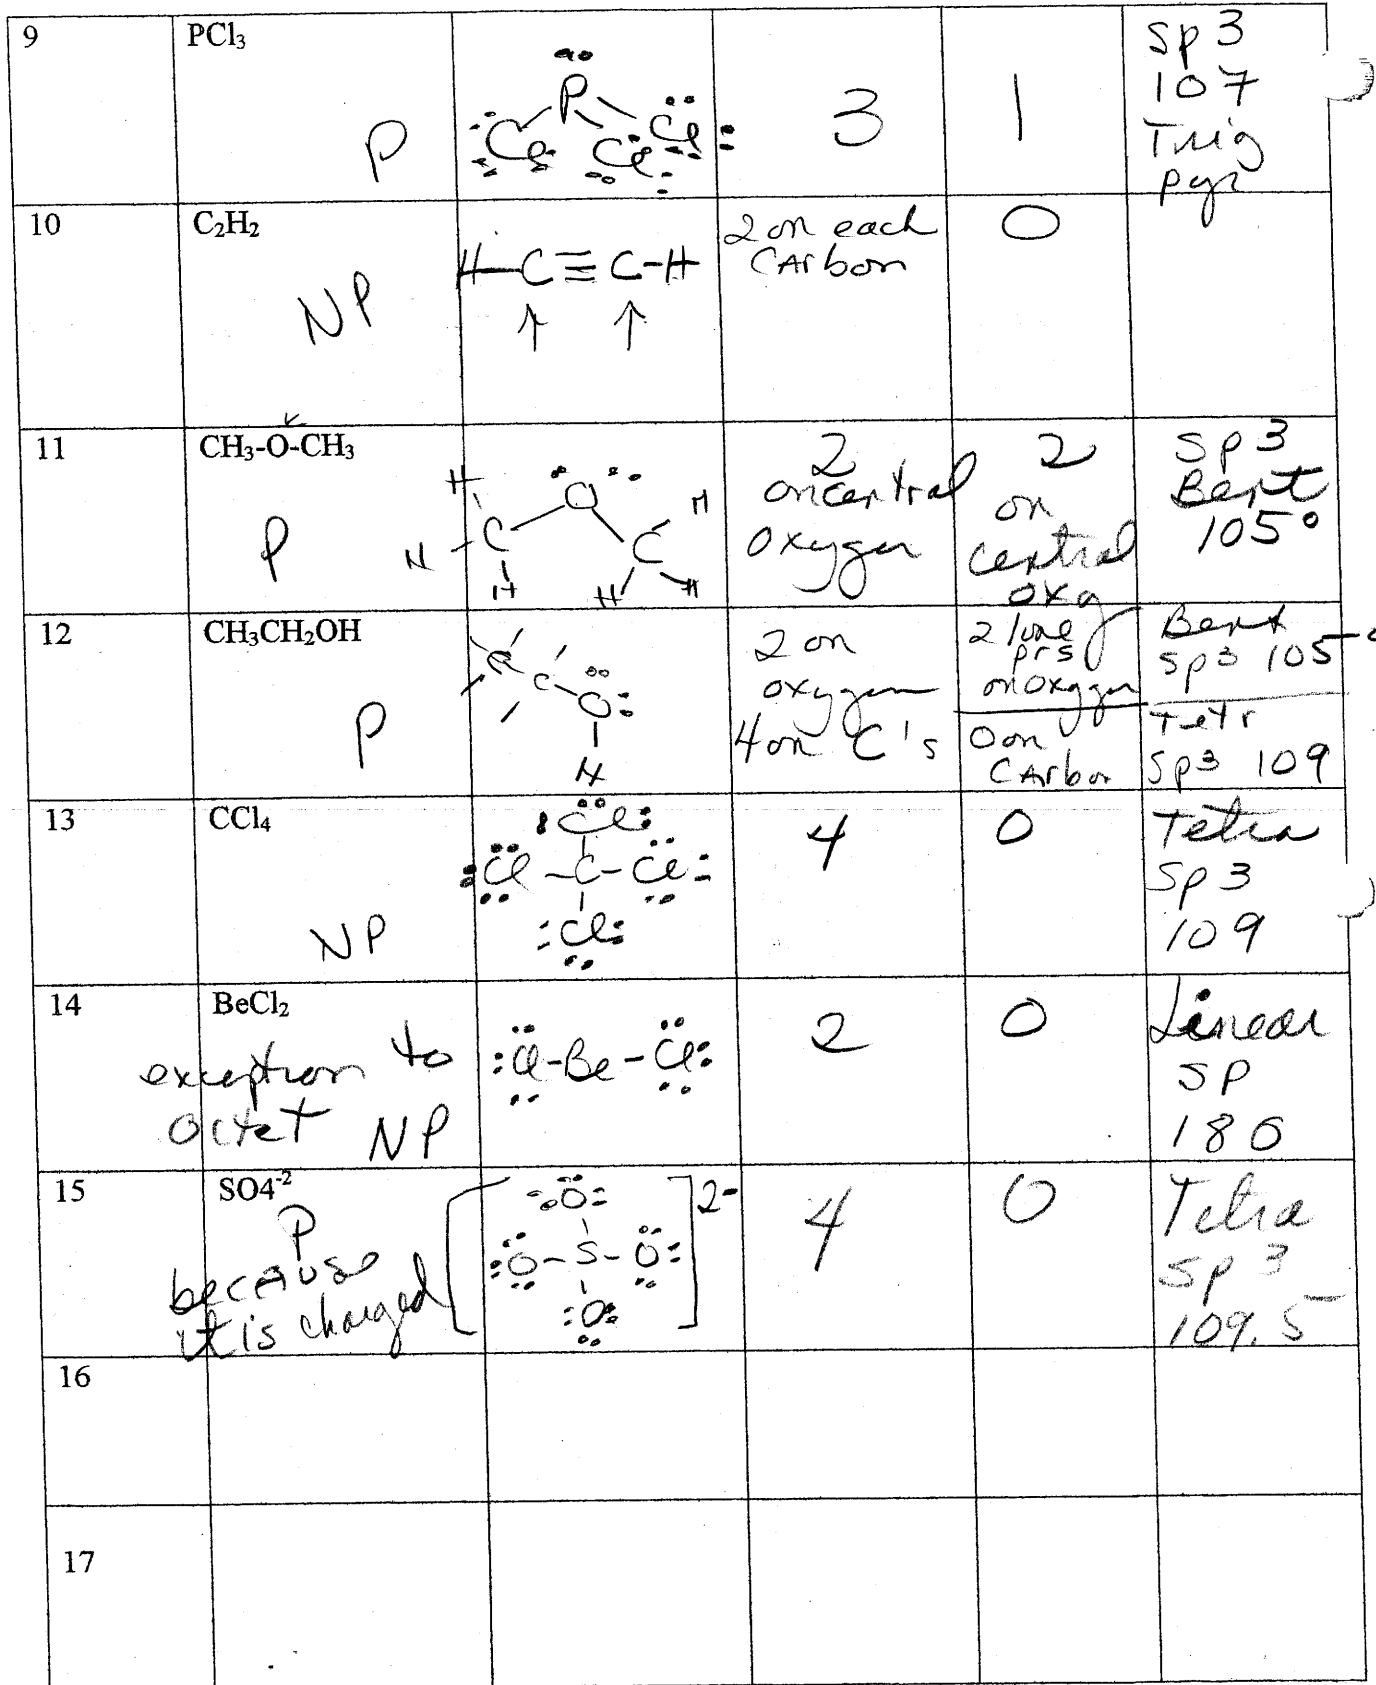 9
PCl₃
P
P
Cl Cl Cl
3
1
sp 3
107
Trig
pyr
10
C₂H₂
NP
H-C≡C-H
↑ ↑
2 on each
Carbon
0
11
CH₃-O-CH₃
P
O
H H
C C
H
H H H
2
on central
oxygen
2
on
central
oxg
sp 3
Bent
105°
12
CH₃CH₂OH
P
C
C
O
H
2 on
oxygen
4 on C's
2 lone
prs
on oxygen
0 on
Carbon
Bent
sp3 105°
Tetr
sp3 109
13
CCl₄
NP
:Cl:
:Cl-C-Cl:
:Cl:
4
0
Tetra
sp 3
109
14
BeCl₂
exception to
octet NP
:Cl-Be-Cl:
2
0
Linear
sp
180
15
SO4⁻²
P
because
it is charged
:O: 2-
:O-S-O:
:O:
4
0
Tetra
sp 3
109.5
16
17